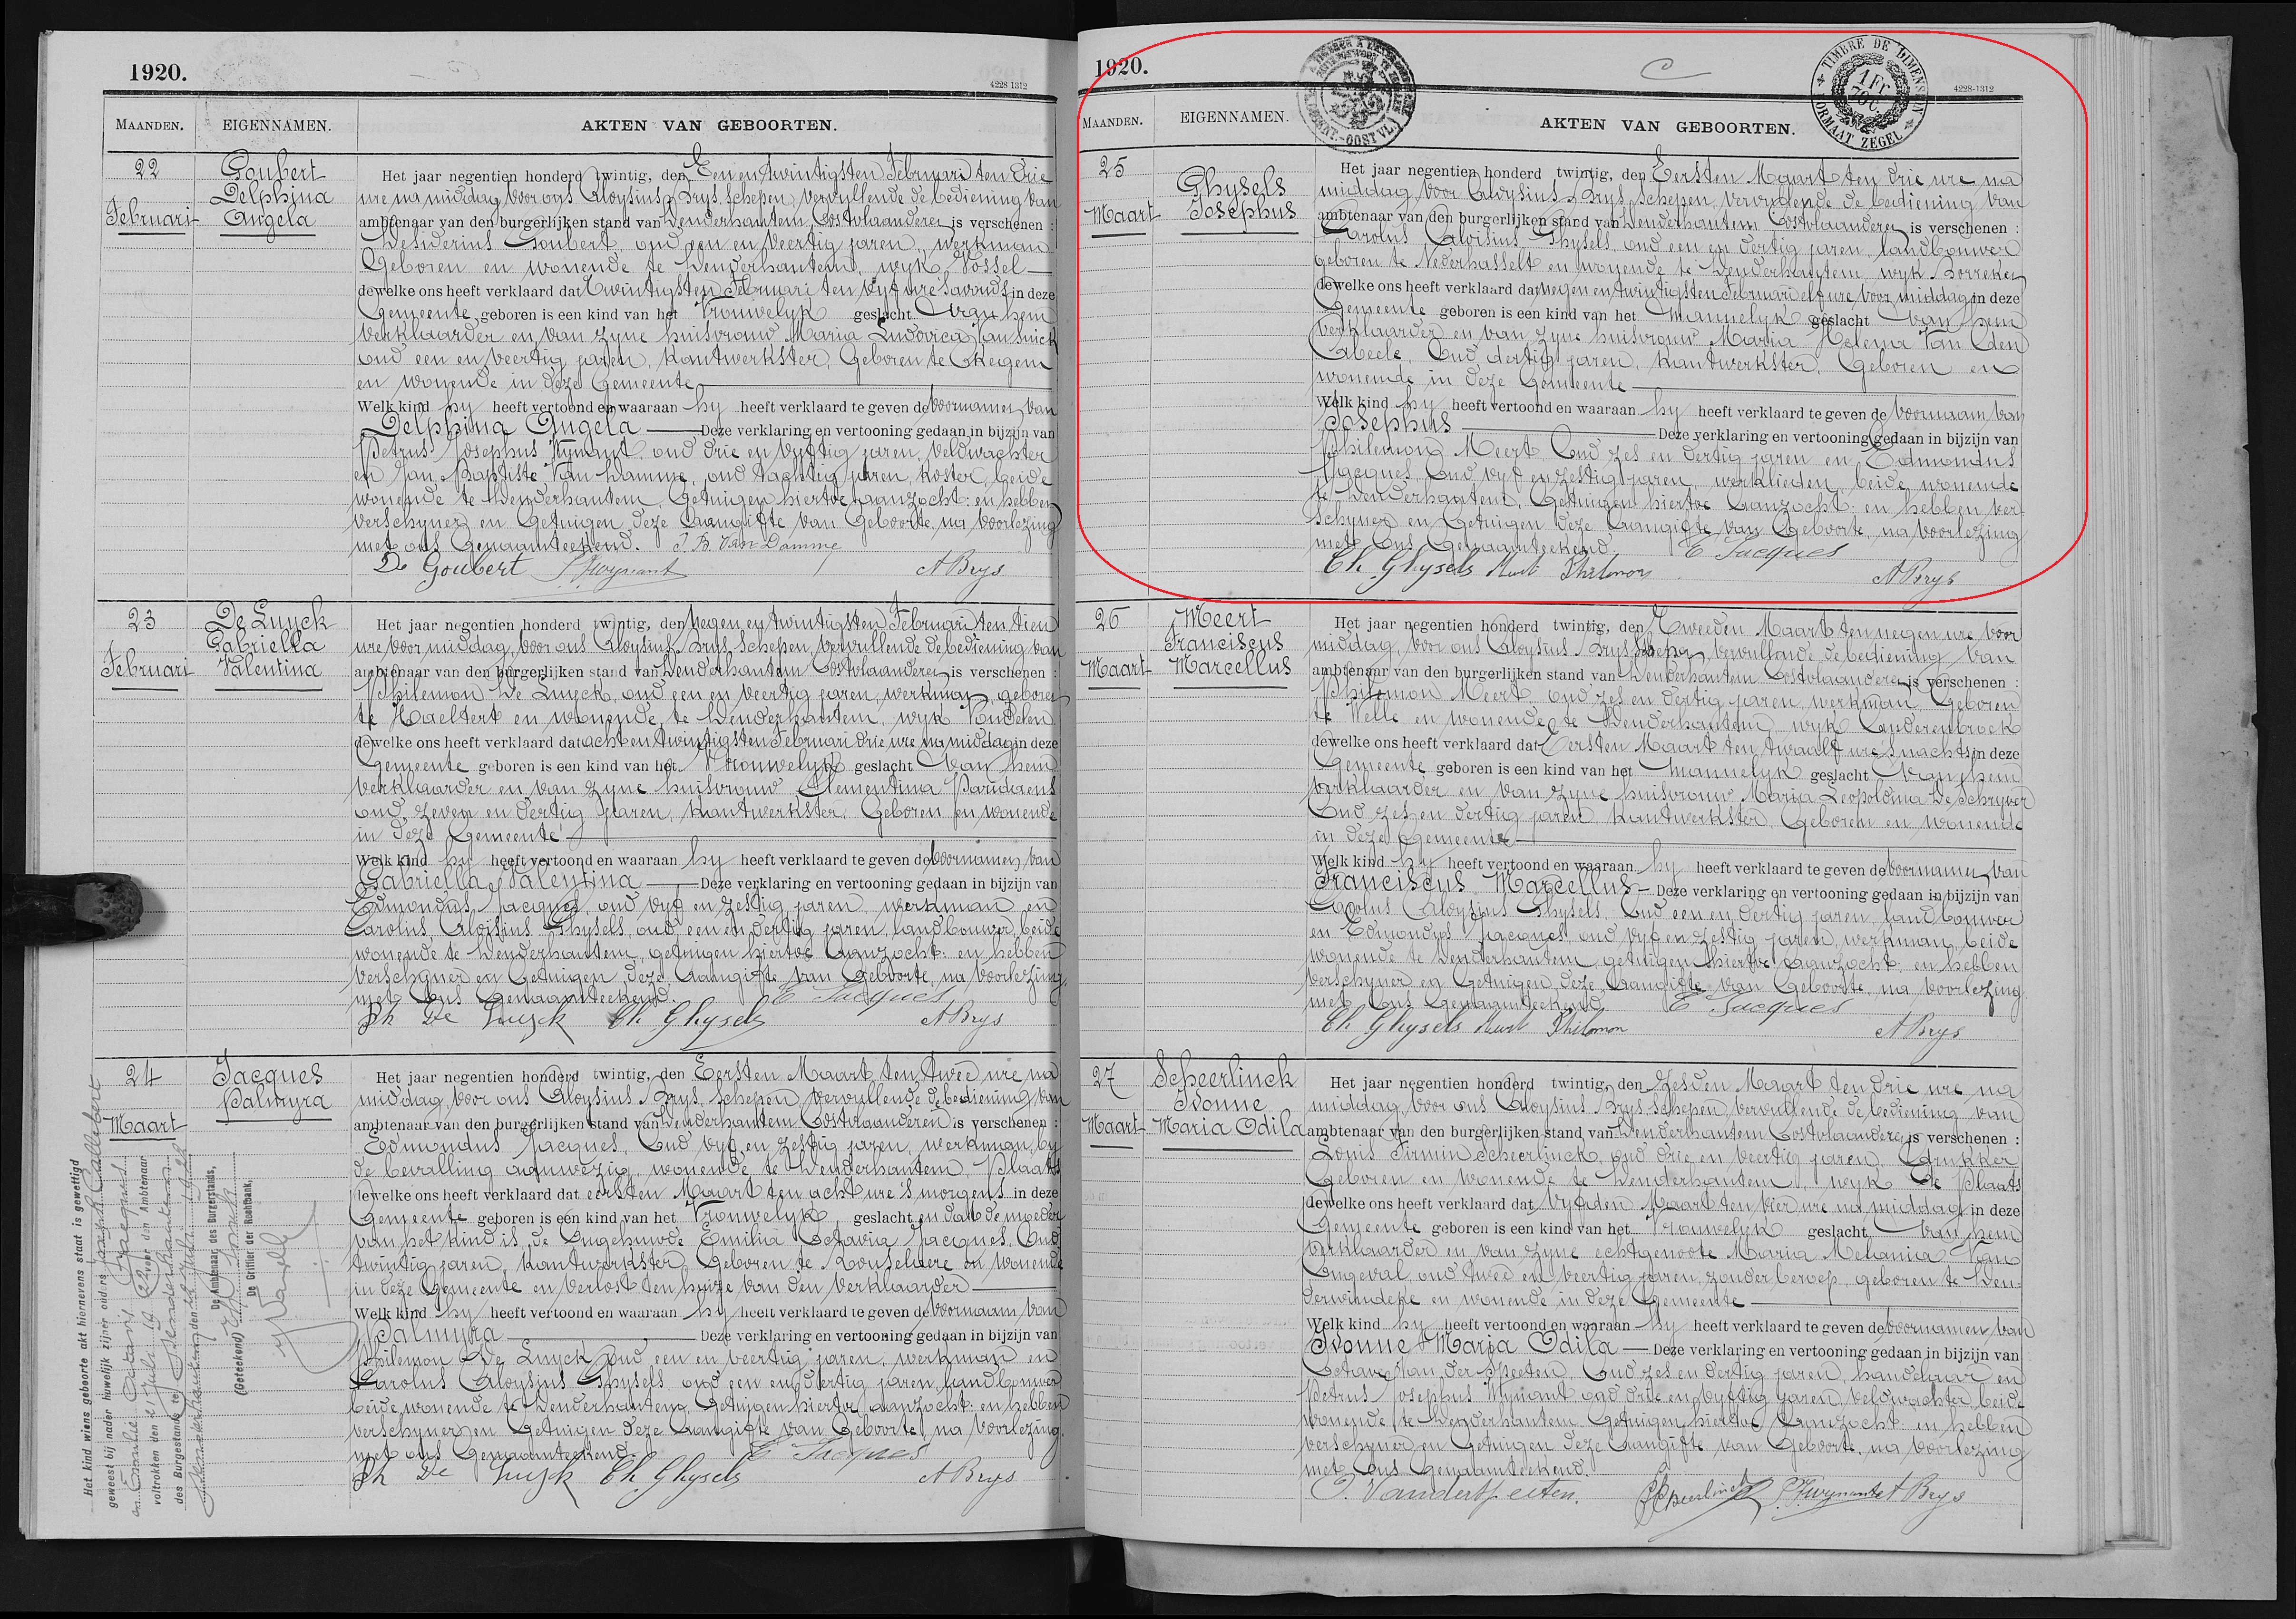 1920.
4228-1312
MAANDEN.
EIGENNAMEN.
AKTEN VAN GEBOORTEN.
22
Februari
Goubert
Delphina
Angela
Het jaar negentien honderd twintig, den Eenentwintigsten Februari ten drie
ure na middag, voor ons Aloysius Brys, schepen, vervullende de bediening van
ambtenaar van den burgerlijken stand van Denderhautem Oostvlaanderen is verschenen :
Desiderius Goubert, oud een en veertig jaren, werkman
Geboren en wonende te Denderhautem, wyk Vossel
dewelke ons heeft verklaard dat twintigsten Februari ten vyf ure s'avonds in deze
Gemeente geboren is een kind van het Vrouwelyk geslacht van hem
verklaarder en van zyne huisvrouw Maria Ludovica
oud een en veertig jaren, kantwerkster, Geboren te Okegem
en wonende in deze Gemeente
Welk kind hy heeft vertoond en waaraan hy heeft verklaard te geven de voornamen van
Delphina Angela Deze verklaring en vertooning gedaan in bijzijn van
Petrus Josephus Wynant oud drie en vyftig jaren, veldwachter
en Jan Baptiste Van Damme, oud tachtig jaren, koster, beide
wonende te Denderhautem, Getuigen hiertoe aanzocht: en hebben
verschyner en Getuigen deze aangifte van Geboorte, na voorlezing
met ons Genaamteekend. J. B. Van Damme
De Goubert Wynant A Brys
23
Februari
De Luyck
Gabriella
Valentina
Het jaar negentien honderd twintig, den negen en twintigsten Februari ten tien
ure voor middag, voor ons Aloysius Brys, schepen, vervullende de bediening van
ambtenaar van den burgerlijken stand van Denderhautem Oostvlaanderen is verschenen :
Philemon De Luyck, oud een en veertig jaren, werkman, geboren
te Haeltert en wonende te Denderhautem, wyk Vondelen
dewelke ons heeft verklaard dat acht en twintigsten Februari drie ure na middag in deze
Gemeente geboren is een kind van het Vrouwelyk geslacht van hem
verklaarder en van zyne huisvrouw Clementina Paridaens
oud zeven en dertig jaren, kantwerkster, Geboren en wonende
in deze Gemeente
Welk kind hy heeft vertoond en waaraan hy heeft verklaard te geven de voornamen van
Gabriella Valentina Deze verklaring en vertooning gedaan in bijzijn van
Edmondus Jacques, oud vyf en zestig jaren, werkman en
Carolus Aloisius Ghysels, oud een en dertig jaren, landbouwer, beide
wonende te Denderhautem, getuigen hiertoe aanzocht: en hebben
verschyner en Getuigen deze aangifte van Geboorte, na voorlezing
met ons Genaamteekend. E Jacques
Ph De Luyck Ch Ghysels A Brys
24
Maart
Jacques
Palmyra
Het jaar negentien honderd twintig, den Eersten Maart ten twee ure na
middag, voor ons Aloysius Brys, schepen, vervullende de bediening van
ambtenaar van den burgerlijken stand van Denderhautem Oostvlaanderen is verschenen :
Edmondus Jacques, oud vyf en zestig jaren, werkman, by
de bevalling aanwezig, wonende te Denderhautem, Plaats
dewelke ons heeft verklaard dat eersten Maart ten acht ure 's morgens in deze
Gemeente geboren is een kind van het Vrouwelyk geslacht en dat de moeder
van het kind is de ongehuwde Emilia Octavia Jacques, oud
twintig jaren, kantwerkster Geboren te Rousselaere en wonende
in deze Gemeente en verlost ten huize van den verklaarder
Welk kind hy heeft vertoond en waaraan hy heeft verklaard te geven de voornaam van
Palmyra Deze verklaring en vertooning gedaan in bijzijn van
Philemon De Luyck oud een en veertig jaren, werkman en
Carolus Aloysius Ghysels oud een en dertig jaren, landbouwer
beide wonende te Denderhautem, Getuigen hiertoe aanzocht: en hebben
verschyner en Getuigen deze Aangifte van Geboorte, na voorlezing
met ons Genaamteekend E Jacques
Ph De Luyck Ch Ghysels A Brys
Het kind wiens geboorte akt hiernevens staat is gewettigd
geweest bij nader huwelijk zijner ouders
voltrokken den voor den Ambtenaar
des Burgerstands te Denderhautem
De Ambtenaar des Burgerstands,
(Geteekend)
De Griffier der Rechtbank,
1920.
TIMBRE DE DIMENSION
1 Fr
70 C.
FORMAAT ZEGEL
4228-1312
MAANDEN.
EIGENNAMEN.
AKTEN VAN GEBOORTEN.
25
Maart
Ghysels
Josephus
Het jaar negentien honderd twintig, den Eersten Maart ten drie ure na
middag, voor Aloysius Brys, schepen, vervullende de bediening van
ambtenaar van den burgerlijken stand van Denderhautem Oostvlaanderen is verschenen :
Carolus Aloisius Ghysels, oud een en dertig jaren, landbouwer
geboren te Nederhasselt en wonende te Denderhautem, wyk Borreken
dewelke ons heeft verklaard dat negen en twintigsten Februari elf ure voor middag in deze
Gemeente geboren is een kind van het Mannelyk geslacht van hem
verklaarder en van zyne huisvrouw Maria Helena Van Den
Abeele, oud dertig jaren, kantwerkster, Geboren en
wonende in deze Gemeente
Welk kind hy heeft vertoond en waaraan hy heeft verklaard te geven de voornaam van
Josephus Deze verklaring en vertooning gedaan in bijzijn van
Philemon Meert oud zes en dertig jaren en Edmondus
Jacques, oud vyf en zestig jaren, werklieden, beide wonende
te Denderhautem, Getuigen hiertoe aanzocht: en hebben ver-
schyner en Getuigen deze Aangifte van Geboorte, na voorlezing
met ons Genaamteekend. E Jacques
Ch Ghysels Meert Philemon A Brys
26
Maart
Meert
Franciscus
Marcellus
Het jaar negentien honderd twintig, den Tweeden Maart ten negen ure voor
middag, voor ons Aloysius Brys, Schepen, vervullende de bediening van
ambtenaar van den burgerlijken stand van Denderhautem Oostvlaanderen is verschenen :
Philemon Meert, oud zes en dertig jaren, werkman, Geboren
te Welle en wonende te Denderhautem, wyk Anderenbroek
dewelke ons heeft verklaard dat Eersten Maart ten twaalf ure snachts in deze
Gemeente geboren is een kind van het Mannelyk geslacht van hem
verklaarder en van zyne huisvrouw Maria Leopoldina De Schryver
oud zes en dertig jaren, kantwerkster, Geboren en wonende
in deze Gemeente
Welk kind hy heeft vertoond en waaraan hy heeft verklaard te geven de voornamen van
Franciscus Marcellus Deze verklaring en vertooning gedaan in bijzijn van
Carolus Aloysius Ghysels, oud een en dertig jaren, landbouwer
en Edmondus Jacques, oud vyf en zestig jaren, werkman, beide
wonende te Denderhautem, getuigen hiertoe aanzocht: en hebben
verschyner en Getuigen deze aangifte van Geboorte, na voorlezing
met ons Genaamteekend E Jacques
Ch Ghysels Meert Philemon A Brys
27
Maart
Scheerlinck
Ivonne
Maria Odila
Het jaar negentien honderd twintig, den Zesden Maart ten drie ure na
middag, voor ons Aloysius Brys, schepen, vervullende de bediening van
ambtenaar van den burgerlijken stand van Denderhautem Oostvlaanderen is verschenen :
Louis Firmin Scheerlinck, oud drie en veertig jaren, drukker
Geboren en wonende te Denderhautem, wyk de Plaats
dewelke ons heeft verklaard dat vyfden Maart ten vier ure na middag in deze
Gemeente geboren is een kind van het Vrouwelyk geslacht van hem
verklaarder en van zyne echtgenoote Maria Melania Van
Ongeval, oud twee en veertig jaren, zonder beroep, geboren te Den-
derwindeke en wonende in deze Gemeente
Welk kind hy heeft vertoond en waaraan hy heeft verklaard te geven de voornamen van
Ivonne Maria Odila Deze verklaring en vertooning gedaan in bijzijn van
Octave Van der Speeten, oud zes en dertig jaren, handelaar en
Petrus Josephus Wynant oud drie en vyftig jaren, veldwachter, beide
wonende te Denderhautem Getuigen hiertoe aanzocht: en hebben
verschyner en Getuigen deze aangifte van Geboorte, na voorlezing
met ons Genaamteekend.
O. Vanderspeeten. Scheerlinck Wynant A Brys